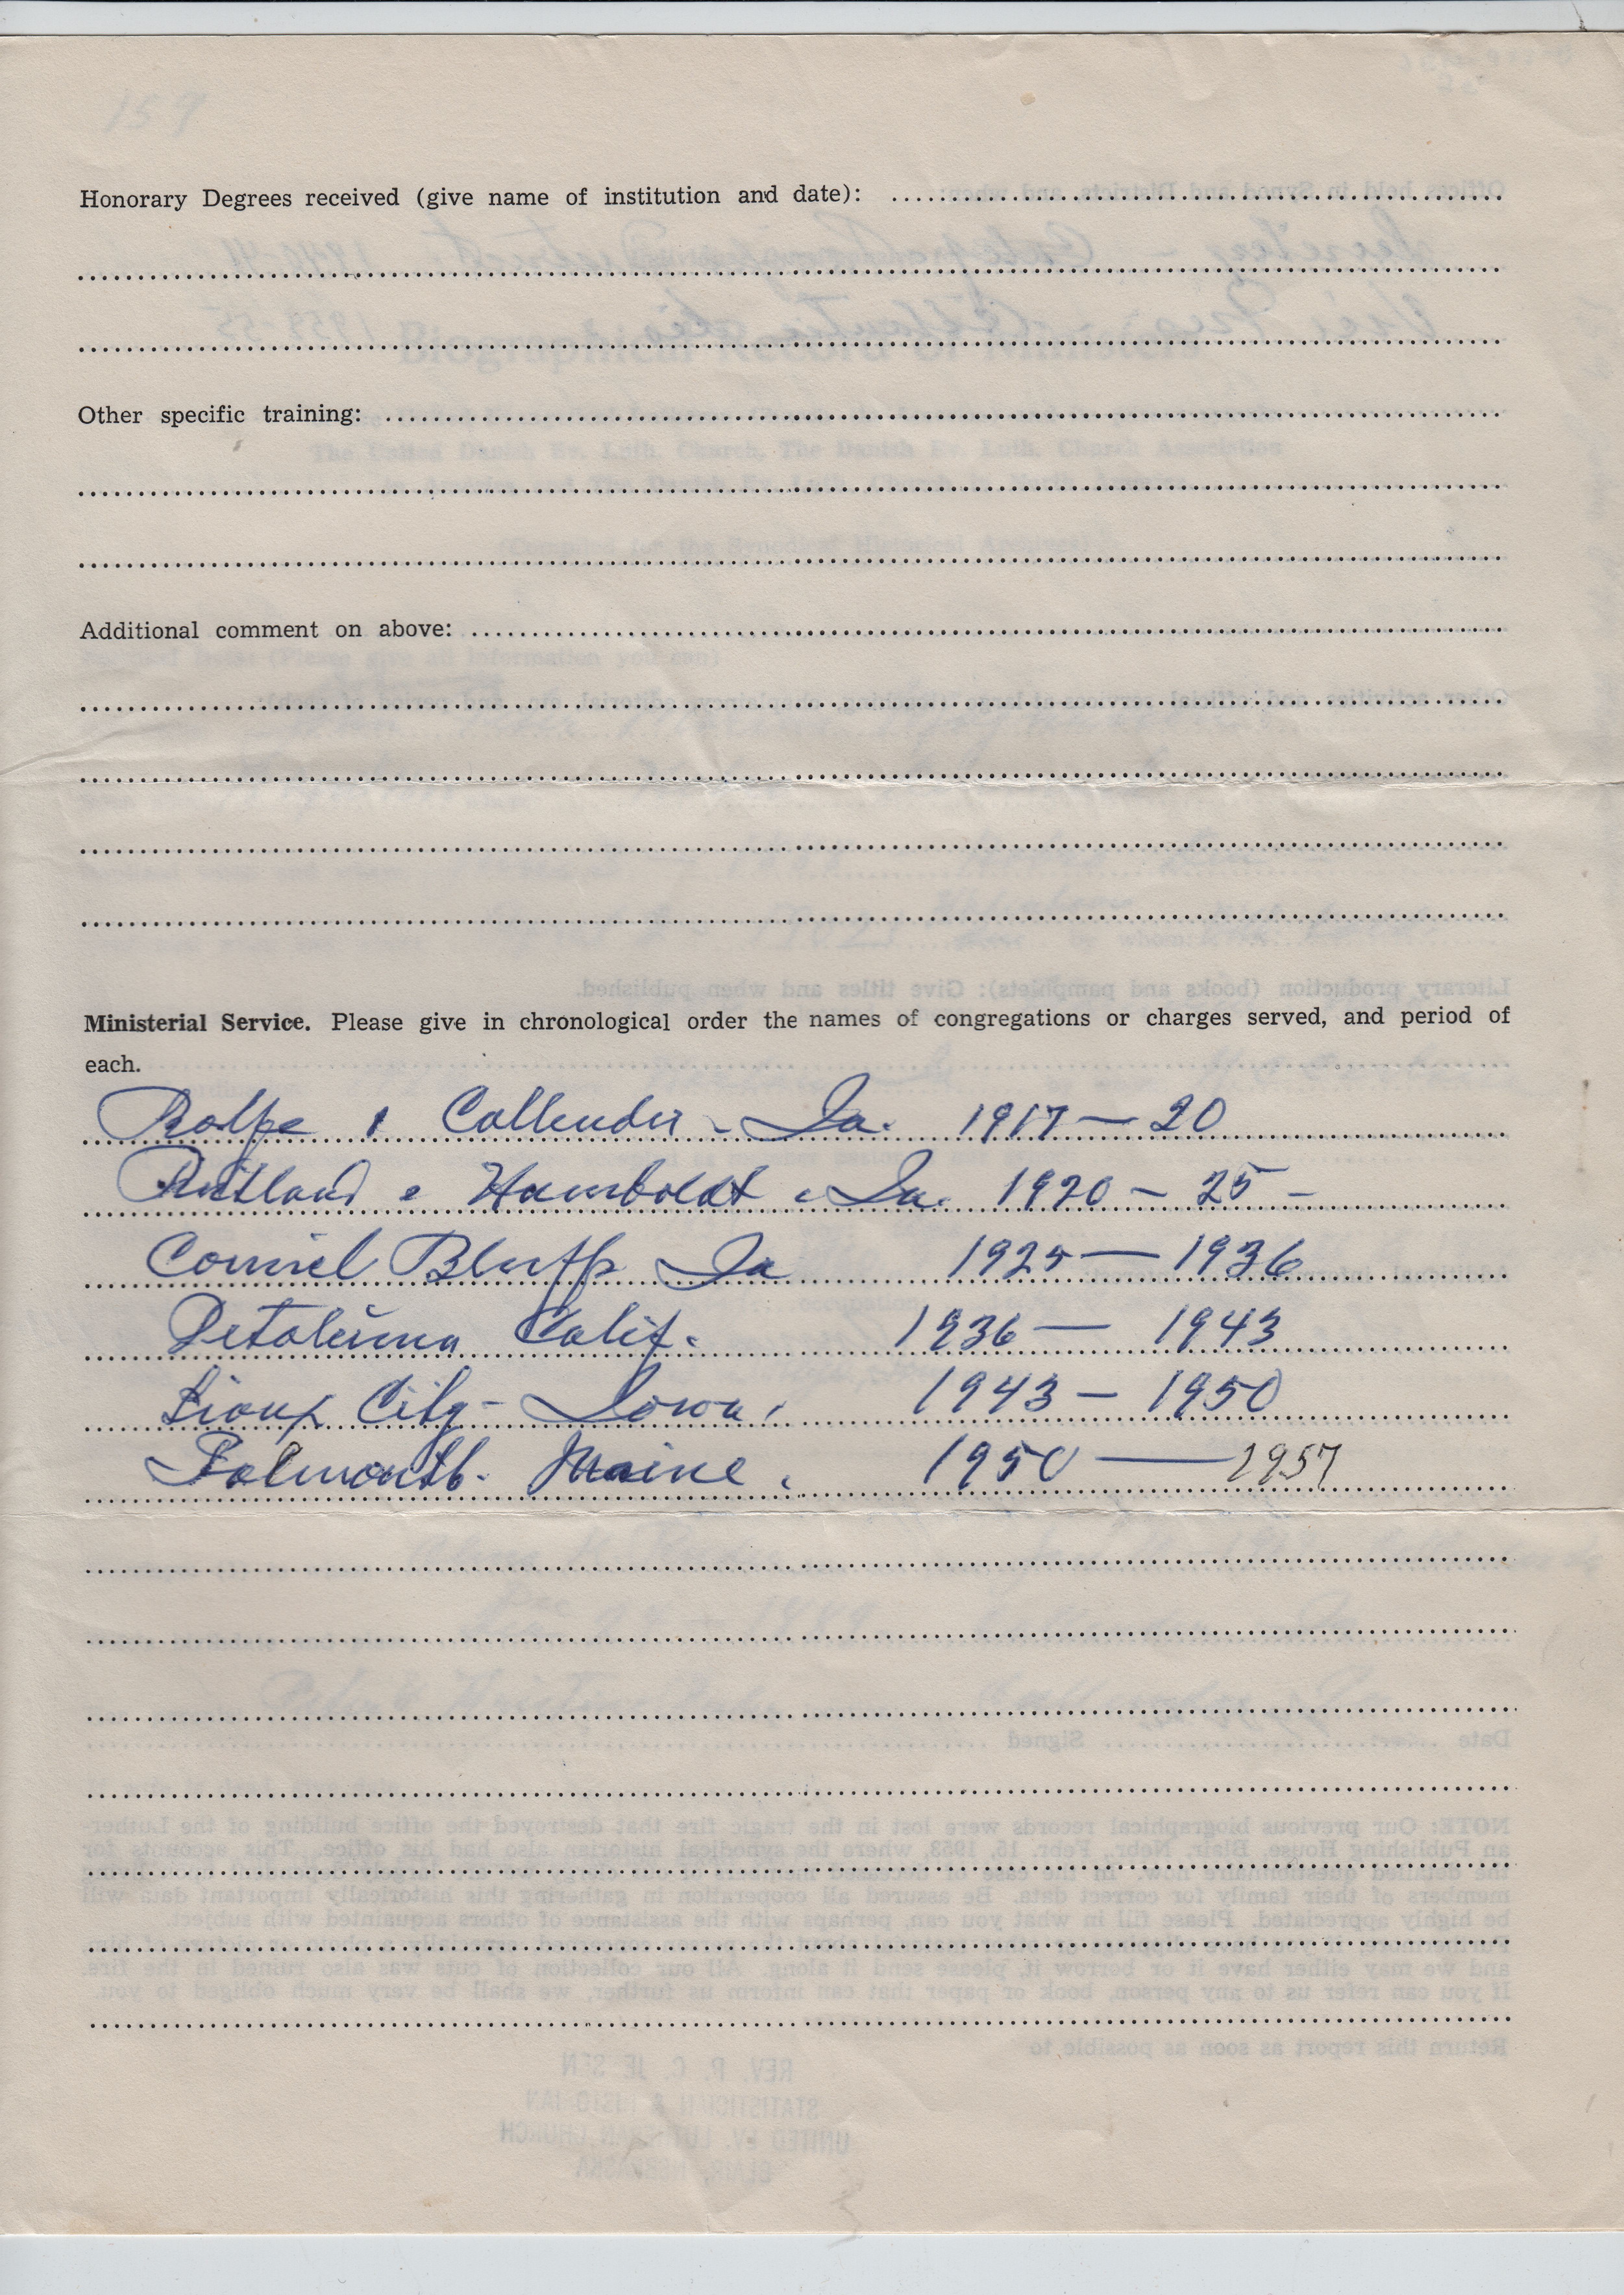 159
Honorary Degrees received (give name of institution and date):
Other specific training:
Additional comment on above:
Ministerial Service. Please give in chronological order the names of congregations or charges served, and period of
each.
Rolfe & Callender - Ia. 1917 — 20
Rutland & Humboldt - Ia. 1920 - 25 -
Council Bluffs Ia 1925 — 1936
Petaluma Calif. 1936 — 1943
Sioux City - Iowa. 1943 - 1950
Falmouth. Maine. 1950 — 1957